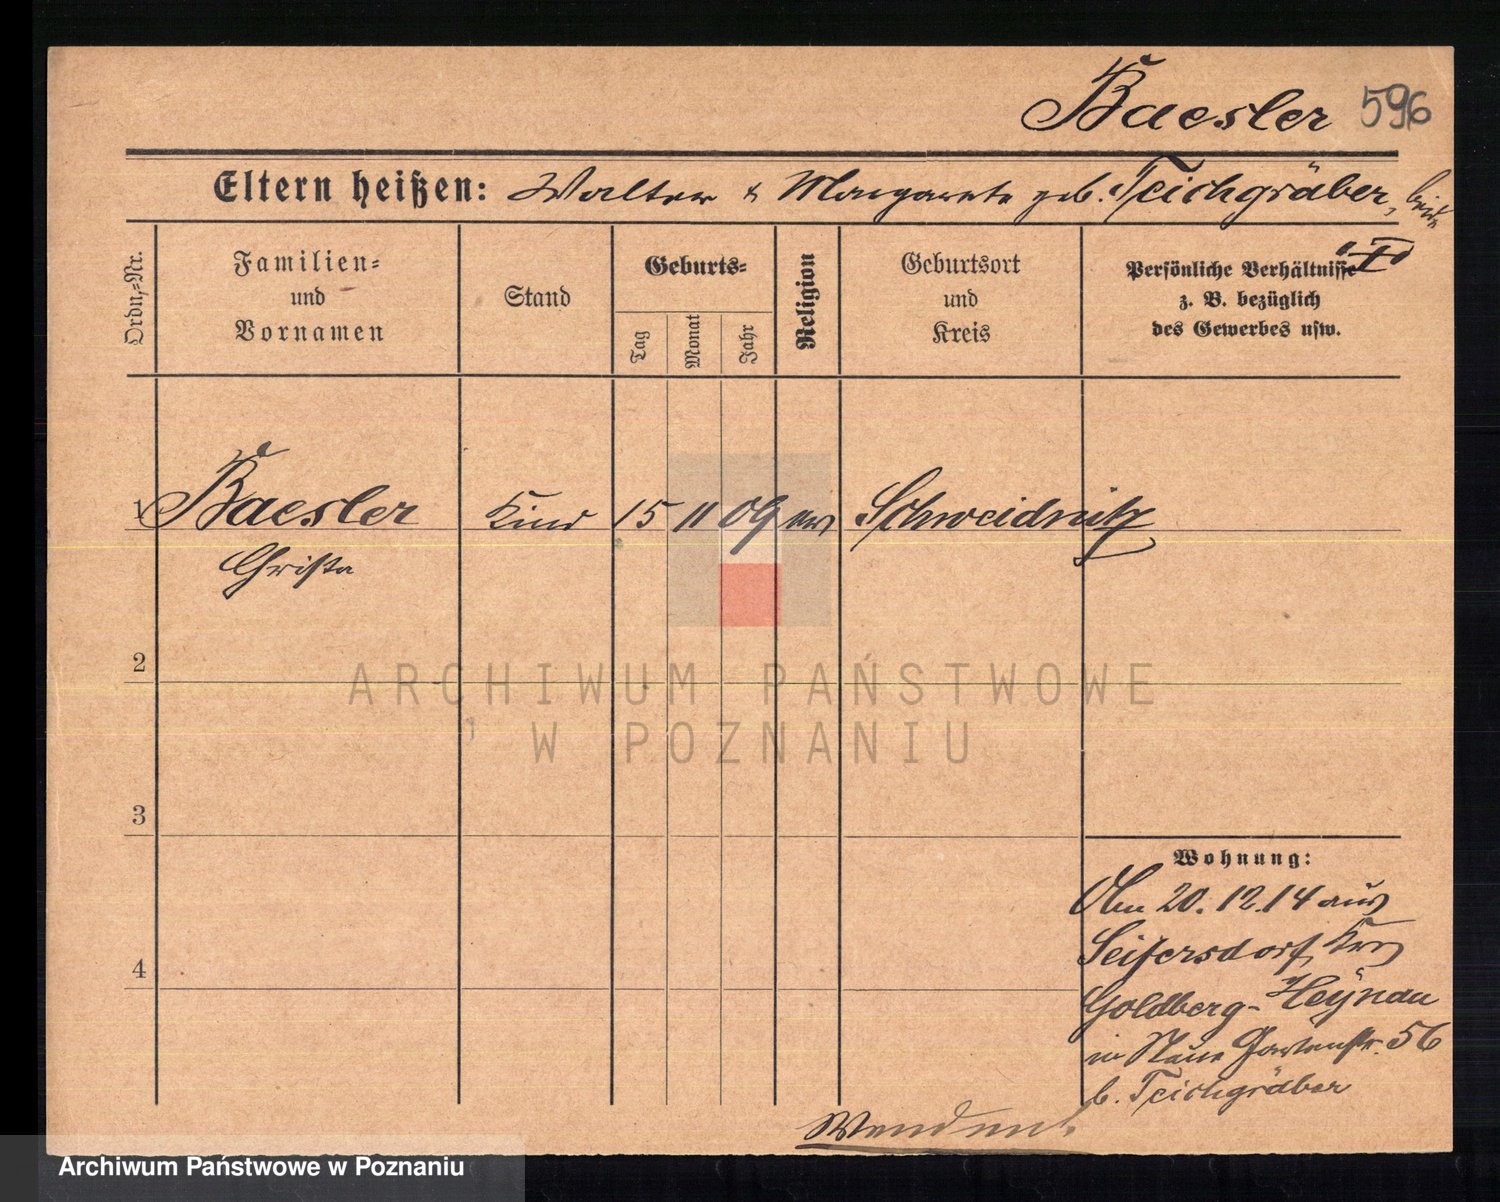 Baesler 596
Eltern heißen: Walter & Margarete geb. Teichgräber, beide
Ordn.-Nr.
Familien-
und
Vornamen
Stand
Geburts-
Tag
Monat
Jahr
Religion
Geburtsort
und
Kreis
Persönliche Verhältnisse
z. B. bezüglich
des Gewerbes usw.
1 Baesler Kind 15 11 09 ev Schweidnitz
Christa
2
ARCHIWUM PAŃSTWOWE
W POZNANIU
3
Wohnung:
Am 20.12.14 aus
Seifersdorf, Krs
Goldberg-Heynau
in Neue Gartenstr. 56
b. Teichgräber
4
Archiwum Państwowe w Poznaniu